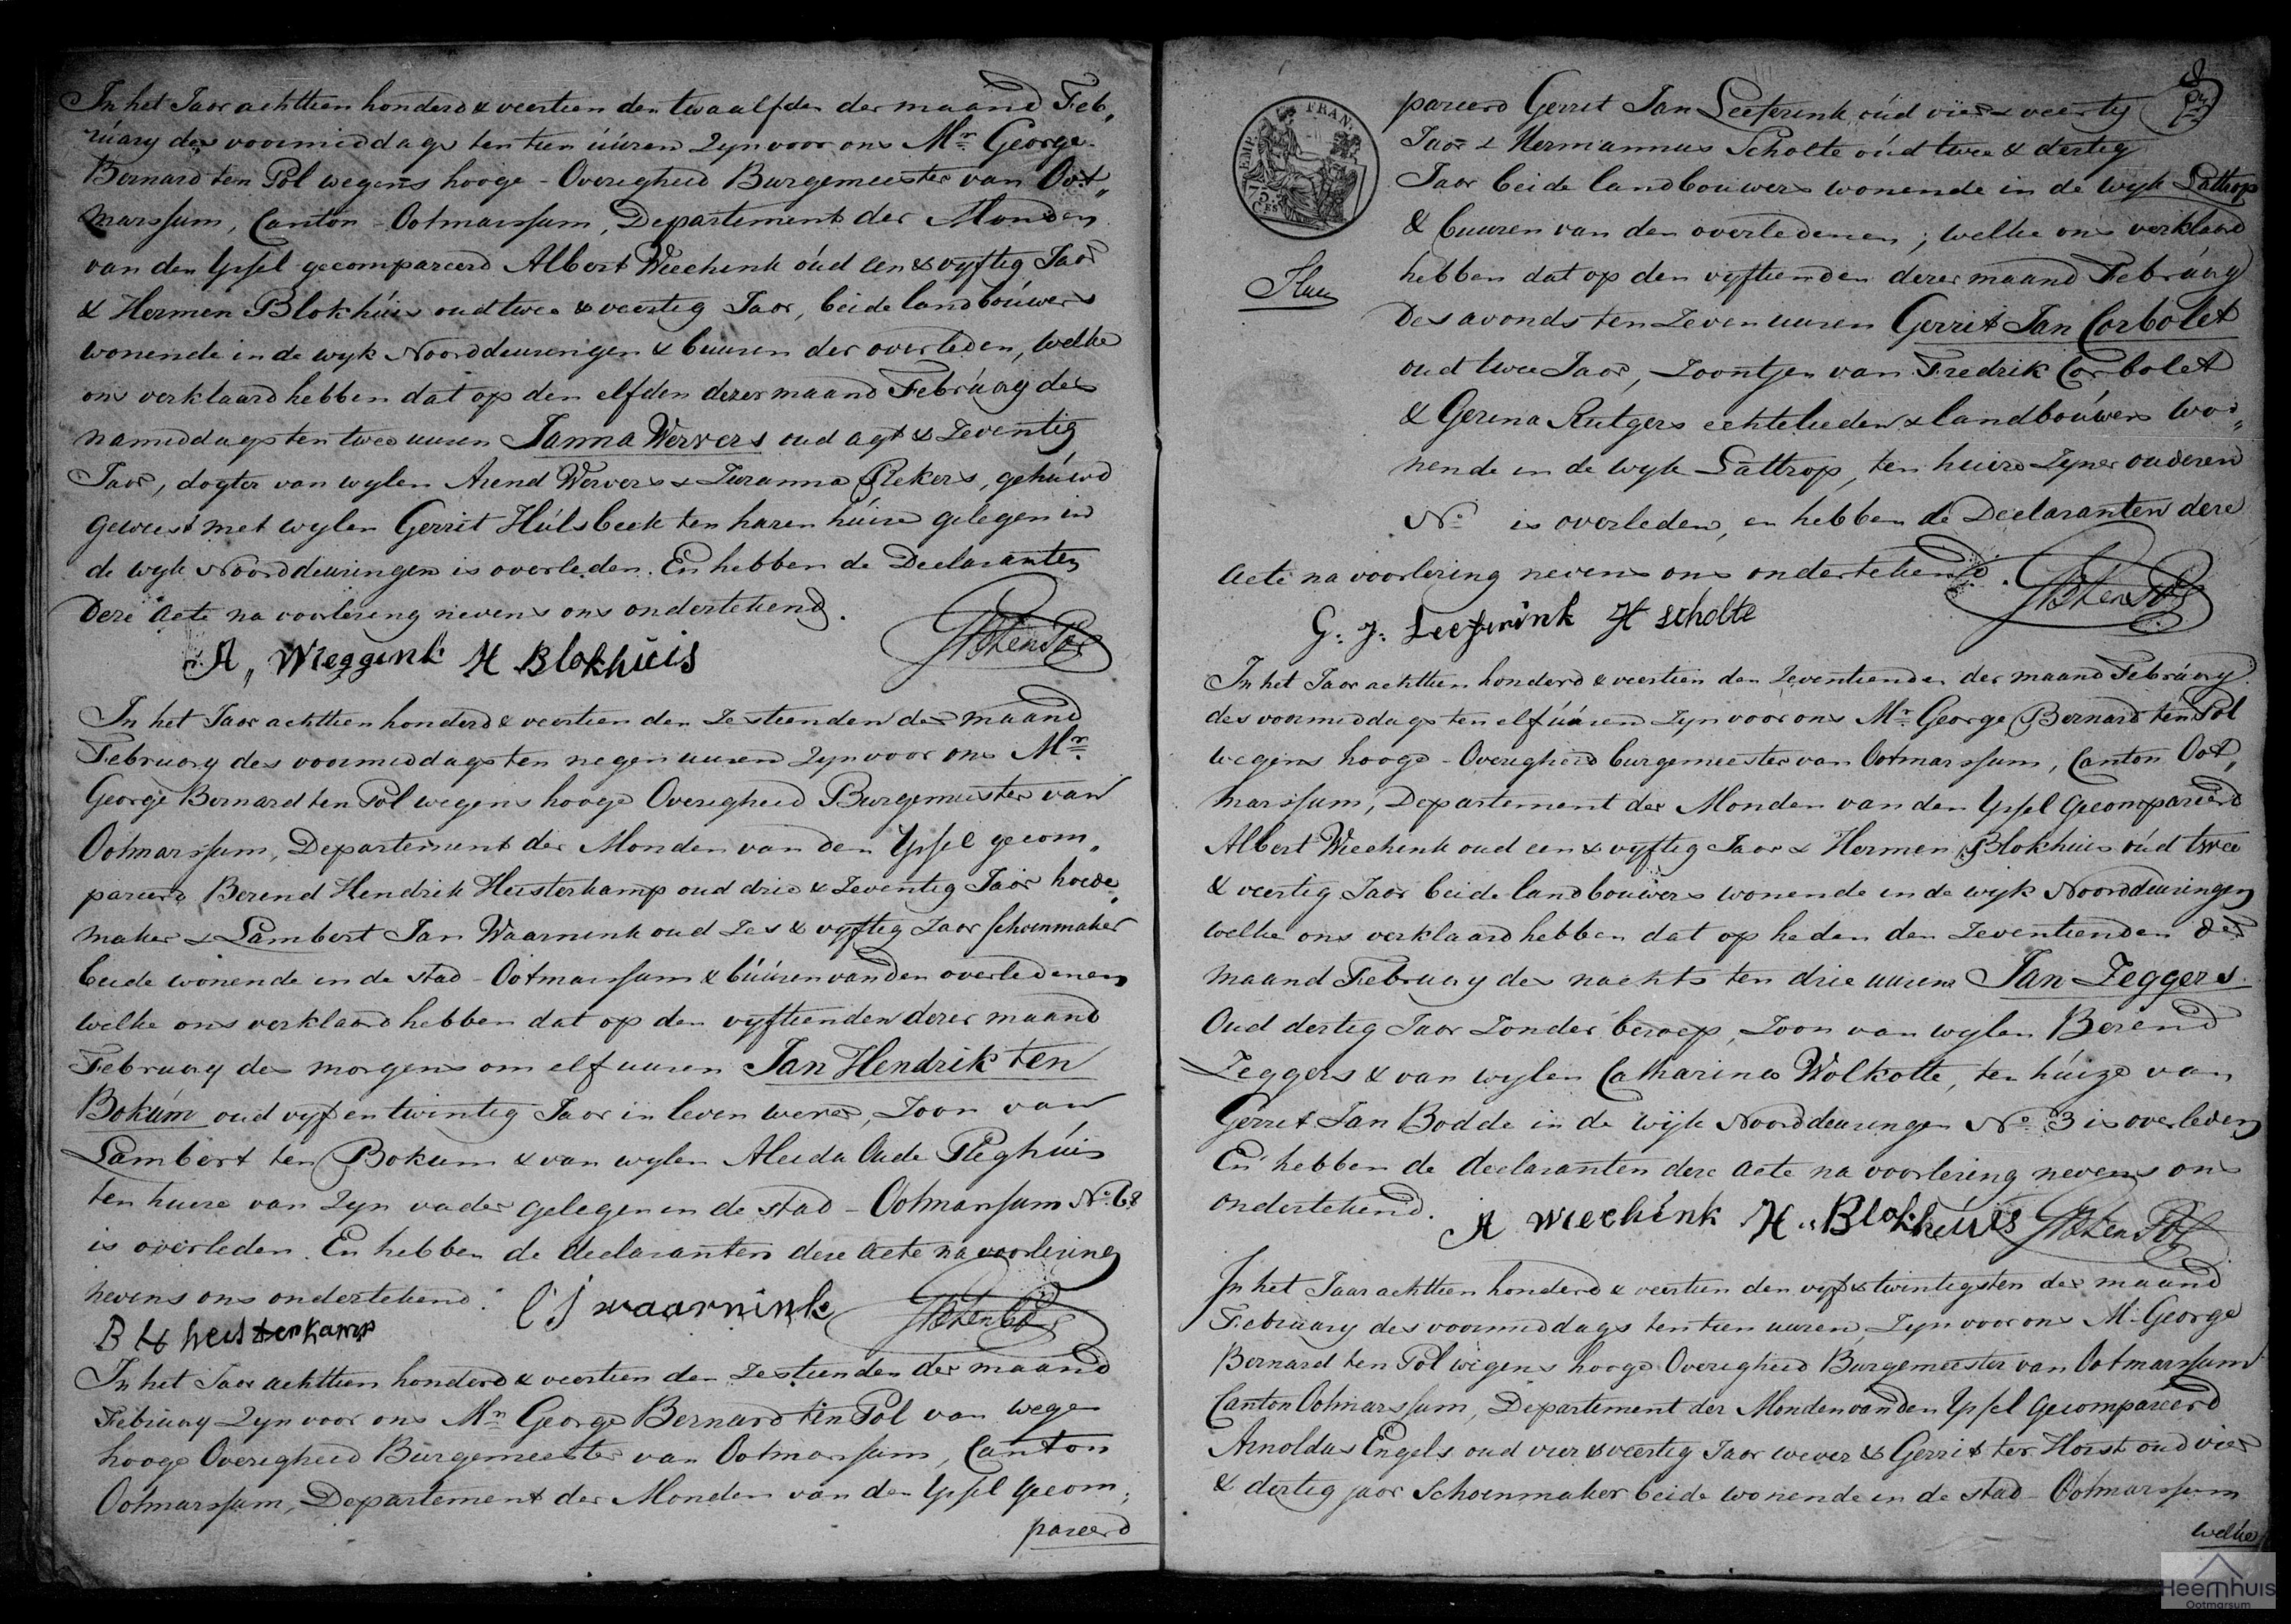 In het Jaor achttien honderd & veertien den twaalfden der maand Feb„
rúary des voormiddags ten tien úúren zyn voor ons Mr. George
Bernard ten Pol wegens hooge-Overigheid Burgemeester van Oot„
marssum, Canton-Ootmarssum, Departement der Monden
van den Yssel gecompareerd Albert Weechink oúd een & vyftig Jaor
& Hermen Blokhúis oud twee & veertig Jaor, beide landboúwers
wonende in de wyk Noorddeuringen & buuren der overleden, welke
ons verklaard hebben dat op den elfden dezer maand Febrúary des
namiddags ten twee uuren Janna Wervers oud agt & zeventig
Jaor, dogter van wylen Arend Wervers & Zuzanna Rekers, gehúwd
geweest met wylen Gerrit Húlsbeek ten haren húize gelegen in
de wyk Noorddeuringen is overleden. En hebben de Declaranten
deze Acte na voorlezing nevens ons ondertekend.
A, Wieggink H Blokhuis GBtenPol
In het Jaor achttien honderd & veertien den zestienden der maand
February des voormiddags ten negen uuren zyn voor ons Mr.
George Bernard ten Pol wegens hooge Overigheid Burgemeester van
Ootmarssum, Departement der Monden van den Yssel gecom„
pareerd Berend Hendrik Heisterkamp oud drie & zeventig Jaor hoede„
maker & Lambert Jan Waarnink oud zes & vyftig Jaor schoenmaker
beide wonende in de stad-Ootmarssum & búúren van den overledenen
welke ons verklaard hebben dat op den vyftienden dezer maand
February des morgens om elf uuren Jan Hendrik ten
Bokúm oud vyf en twintig Jaor in leven wever, zoon van
Lambert ten Bokum & van wylen Aleida Oude Pleghúis
ten huize van zyn vader gelegen in de stad-Ootmarssum No. 68
is overleden. En hebben de declaranten deze Acte na voorlezing
nevens ons ondertekend. l j waarnink GBtenPol
B H heisterkamp
In het Jaor achttien honderd & veertien den zestienden der maand
February zyn voor ons Mr. George Bernard ten Pol van wege
hooge Overigheid Burgemeester van Ootmarssum, Canton
Ootmarssum, Departement der Monden van den Yssel gecom„
pareerd
TIMP. FRAN.
75 CES
pareerd Gerrit Jan Leeferink oúd vier & veertig
Jaor & Hermannus Scholte oúd twee & dertig
Jaor beide landbouwers wonende in de wyk Lattrop
& buuren van den overledenen; welke ons verklaard
hebben dat op den vyftienden dezer maand Febrúary
des avonds ten zeven uuren Gerrit Jan Corbolet
oud twee Jaor, zoontjen van Fredrik Corbolet
& Gerina Rutgers echtelieden & landboúwers wo„
nende in de wyk Lattrop, ten huize zyner ouderen
No. is overleden, en hebben de Declaranten deze
Acte na voorlezing nevens ons ondertekend.
G: J: Leeferink H scholte GBtenPol
In het Jaor achttien honderd & veertien den zeventienden der maand Febrúary
des voormiddags ten elf úúren zyn voor ons Mr. George Bernard ten Pol
wegens hooge-Overigheid burgemeester van Ootmarssum, Canton Oot„
marssum, Departement der Monden van den Yssel gecompareerd
Albert Wiechink oud een & vyftig Jaor & Hermen Blokhuis oúd twee
& veertig Jaor beide landbouwers wonende in de wijk Noorddeuringen
welke ons verklaard hebben dat op heden den zeventienden der
maand February des nachts ten drie uuren Jan Zeggers
Oud dertig Jaor zonder beroep, zoon van wylen Berend
Zeggers & van wylen Catharina Wolkotte, ten húize van
Gerrit Jan Bodde in de wijk Noorddeuringen No. 3 is overleden
En hebben de declaranten deze Acte na voorlezing nevens ons
ondertekend. A Wiechink H„ Blokhúis GBtenPol
In het Jaar achttien honderd & veertien den vyf & twintigsten der maand
February des voormiddags ten tien uuren, zyn voor ons M. George
Bernard ten Pol wegens hooge Overigheid Burgemeester van Ootmarssum
Canton Ootmarssum, Departement der Monden van den Yssel gecompareerd
Arnoldus Engels oud vier & veertig Jaor wever & Gerrit ter Horst oud vier
& dertig jaor Schoenmaker beide wonende in de stad-Ootmarssum
welke
Heemhuis
Ootmarsum